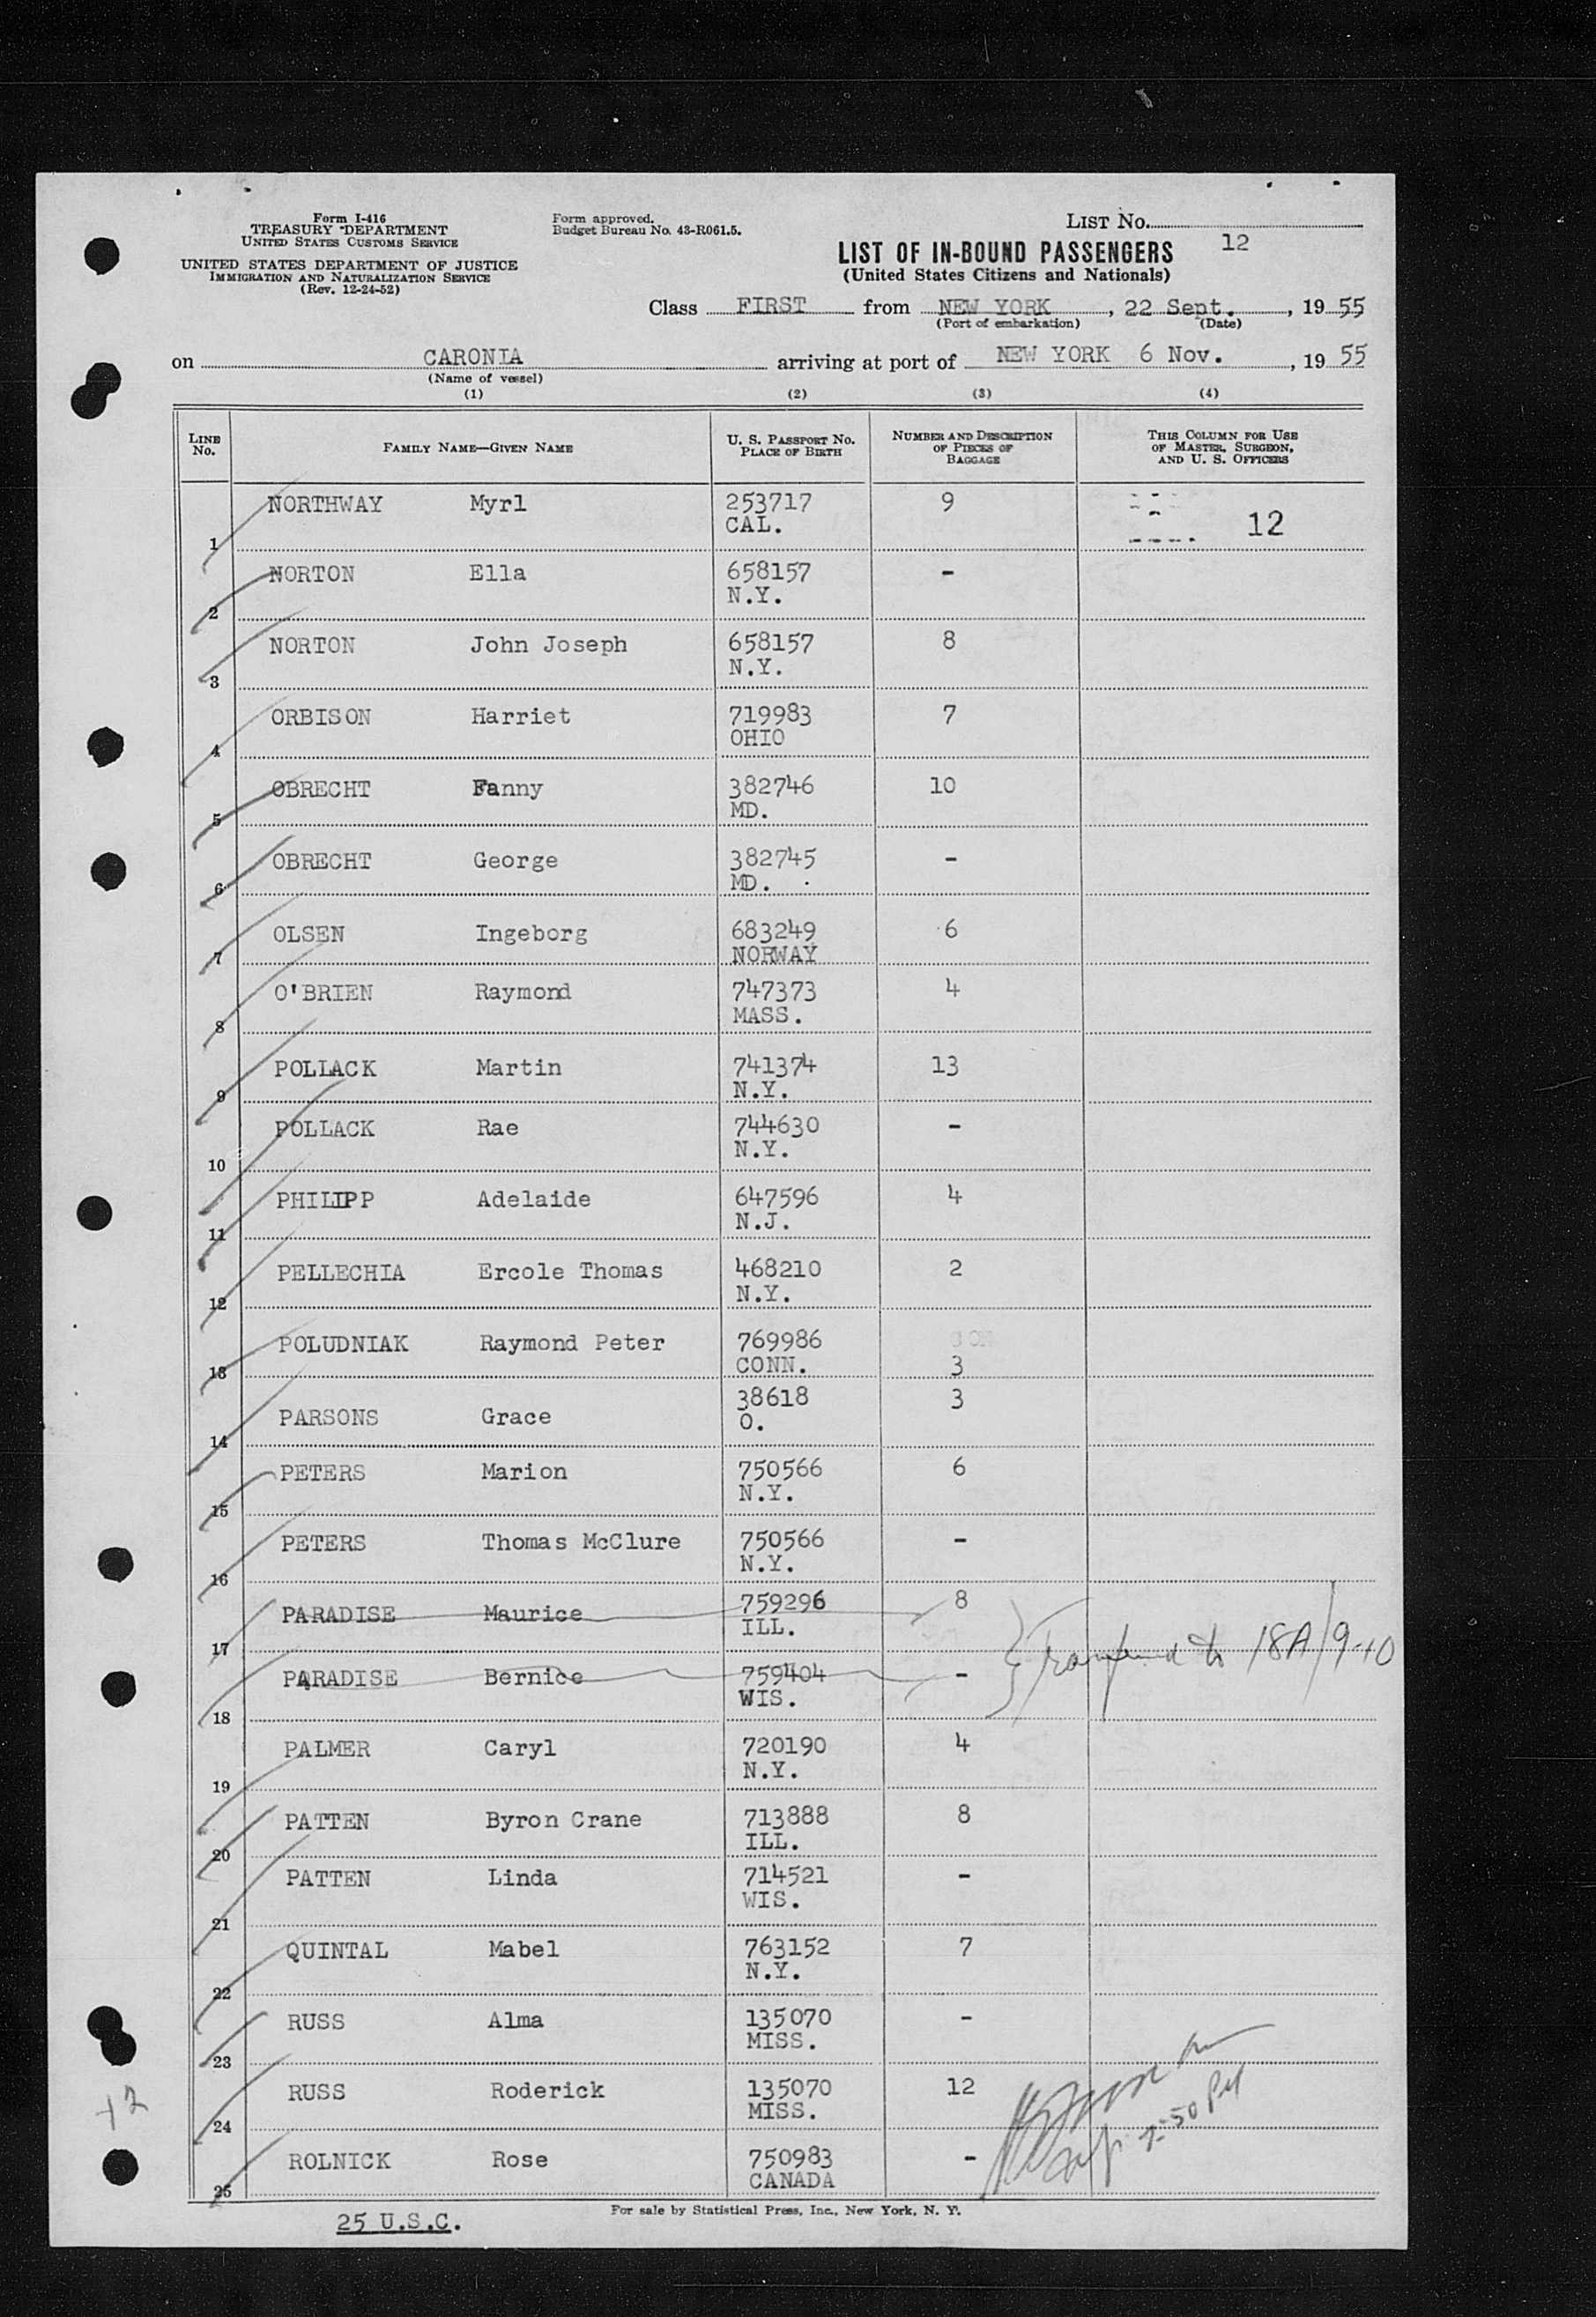 Form I-416
TREASURY DEPARTMENT
UNITED STATES CUSTOMS SERVICE
UNITED STATES DEPARTMENT OF JUSTICE
IMMIGRATION AND NATURALIZATION SERVICE
(Rev. 12-24-52)
Form approved.
Budget Bureau No. 43-R061.5.
LIST No.
12
LIST OF IN-BOUND PASSENGERS
(United States Citizens and Nationals)
Class FIRST from NEW YORK, 22 Sept., 1955
(Port of embarkation) (Date)
on CARONIA arriving at port of NEW YORK 6 Nov., 1955
(Name of vessel)
(1) (2) (3) (4)
LINE No. FAMILY NAME—GIVEN NAME U. S. PASSPORT No. PLACE OF BIRTH NUMBER AND DESCRIPTION OF PIECES OF BAGGAGE THIS COLUMN FOR USE OF MASTER, SURGEON, AND U. S. OFFICERS
1 NORTHWAY Myrl 253717 9
CAL. 12
2 NORTON Ella 658157 -
N.Y.
3 NORTON John Joseph 658157 8
N.Y.
4 ORBISON Harriet 719983 7
OHIO
5 OBRECHT Fanny 382746 10
MD.
6 OBRECHT George 382745 -
MD.
7 OLSEN Ingeborg 683249 6
NORWAY
8 O'BRIEN Raymond 747373 4
MASS.
9 POLLACK Martin 741374 13
N.Y.
10 POLLACK Rae 744630 -
N.Y.
11 PHILIPP Adelaide 647596 4
N.J.
12 PELLECHIA Ercole Thomas 468210 2
N.Y.
13 POLUDNIAK Raymond Peter 769986
CONN. 3
14 PARSONS Grace 38618 3
O.
15 PETERS Marion 750566 6
N.Y.
16 PETERS Thomas McClure 750566 -
N.Y.
17 PARADISE Maurice 759296 8
ILL.
to 18A/9-10
18 PARADISE Bernice 759404 -
WIS.
19 PALMER Caryl 720190 4
N.Y.
20 PATTEN Byron Crane 713888 8
ILL.
21 PATTEN Linda 714521 -
WIS.
22 QUINTAL Mabel 763152 7
N.Y.
23 RUSS Alma 135070 -
MISS.
24 RUSS Roderick 135070 12
MISS.
7:50 PM
25 ROLNICK Rose 750983 -
CANADA
12
25 U.S.C.
For sale by Statistical Press, Inc., New York, N. Y.